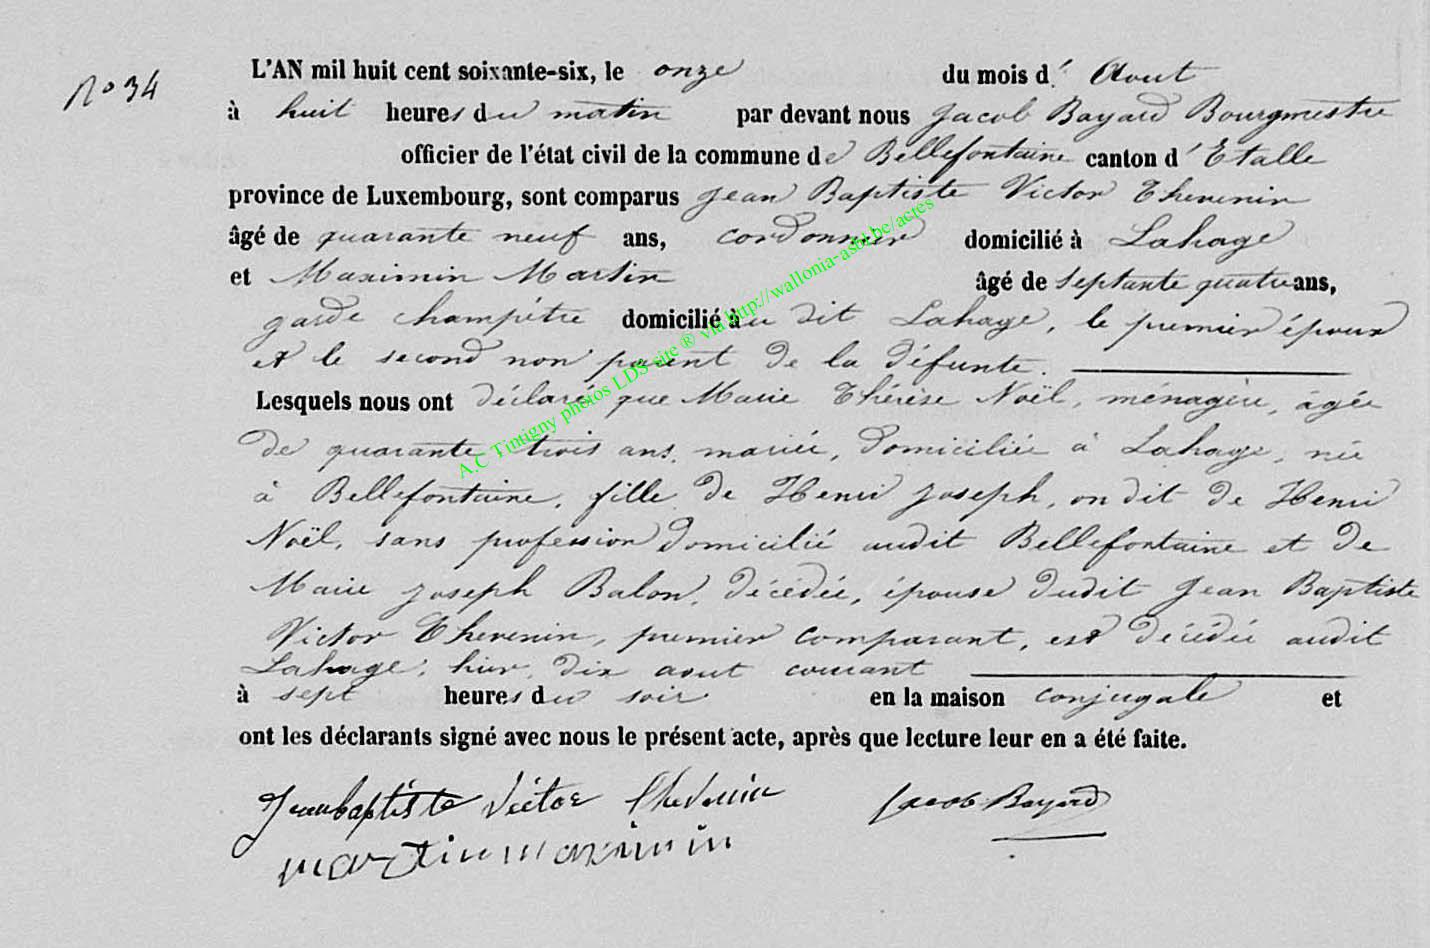 No 34
L'AN mil huit cent soixante-six, le onze du mois d' Aout
à huit heures du matin par devant nous Jacob Bayard Bourgmestre
officier de l'état civil de la commune de Bellefontaine canton d' Etalle
province de Luxembourg, sont comparus Jean Baptiste Victor Thevenin
âgé de quarante neuf ans, cordonnier domicilié à Lahage
et Maximin Martin âgé de septante quatre ans,
garde champêtre domicilié au dit Lahage, le premier époux
et le second non parent de la défunte.
Lesquels nous ont déclaré que Marie Thérèse Noël, ménagère, agée
de quarante trois ans, mariée, domiciliée à Lahage, née
à Bellefontaine, fille de Henri Joseph, on dit de Henri
Noël, sans profession domicilié audit Bellefontaine et de
Marie Joseph Balon, décédée, épouse dudit Jean Baptiste
Victor Thevenin, premier comparant, est décédée audit
Lahage, hier, dix aout courant
à sept heures du soir en la maison conjugale et
ont les déclarants signé avec nous le présent acte, après que lecture leur en a été faite.
Jeanbaptiste Victor Thevenin Jacob Bayard
martin maximin
A.C Tintigny photos LDS site ® via http://wallonia-asbl.be/actes